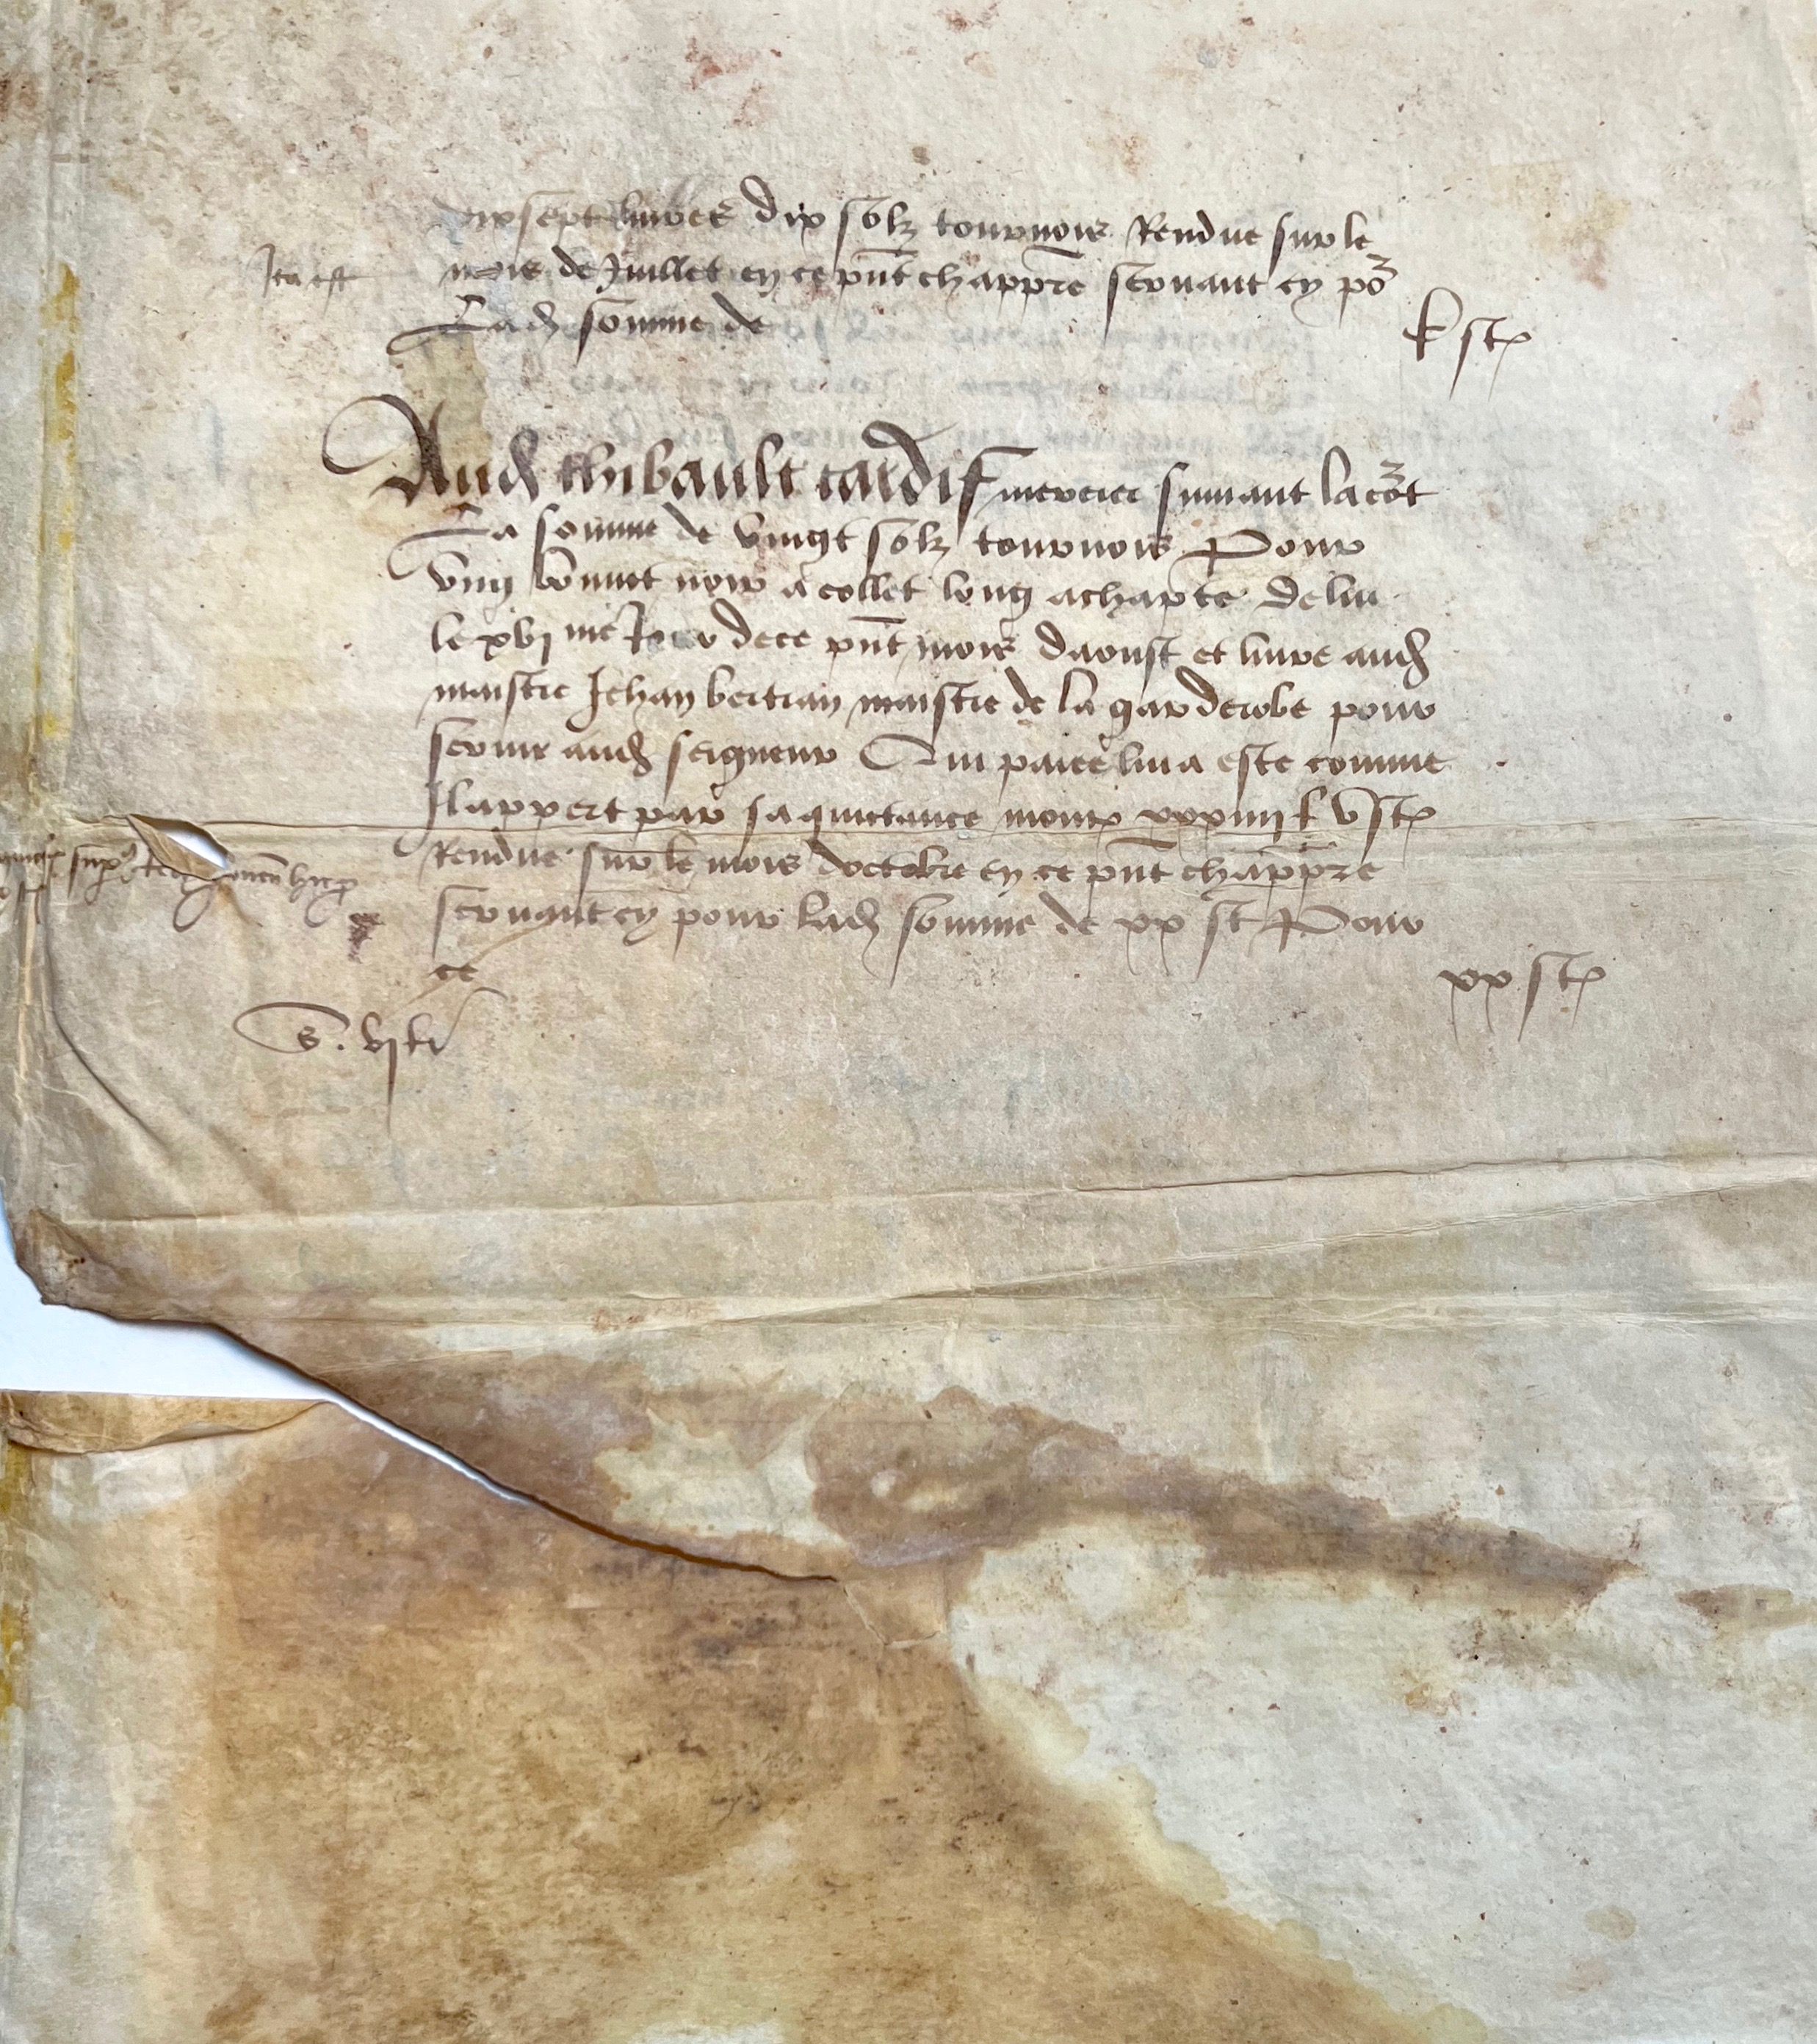 dixsept livres dix solz tournois Rendue sur le
Ita est
mois de Juillet en ce pñt chappr̃e servant cy po~
Lad somme de
x st
Aud thibault tardif mercier suivant la co~t
La somme de vingt solz tournois Pour
ung bonnet noir a collet long achapte de lui
le xvj me Jour de ce pñt mois daoust et livre aud
maistre Jehan bertran maistre de la garderobe pour
servir aud seigneur Qui paiee lui a este comme
Il appert par sa quictance mont xxxiiij £ v st
Rendue sur le mois doctobre en ce pñt chappr̃e
servant cy pour lad somme de xx st Pour
ce
xx st